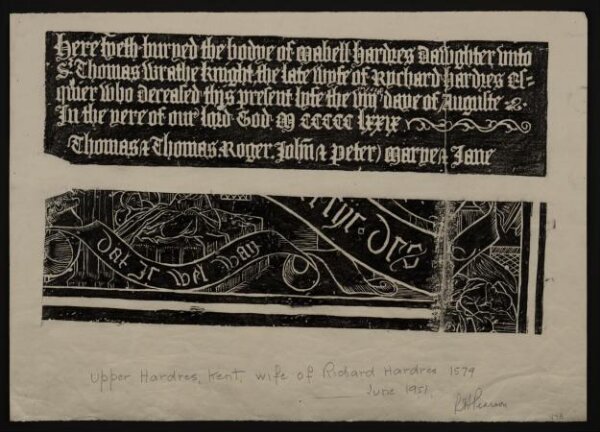 Here lyeth buryed the bodye of Mabell Hardres Dawghter unto
Sr Thomas Wrathe knight the late wyfe of Rychard Hardres Es=
quier who Deceased thys present lyfe the viij daye of Auguste &
In the yere of our lord God M CCCCC lxxix
Thomas & Thomas Roger John & Peter Marye & Jane
dat ic wel wan
Upper Hardres, Kent, wife of Richard Hardres 1579
June 1951.
R H Pearson